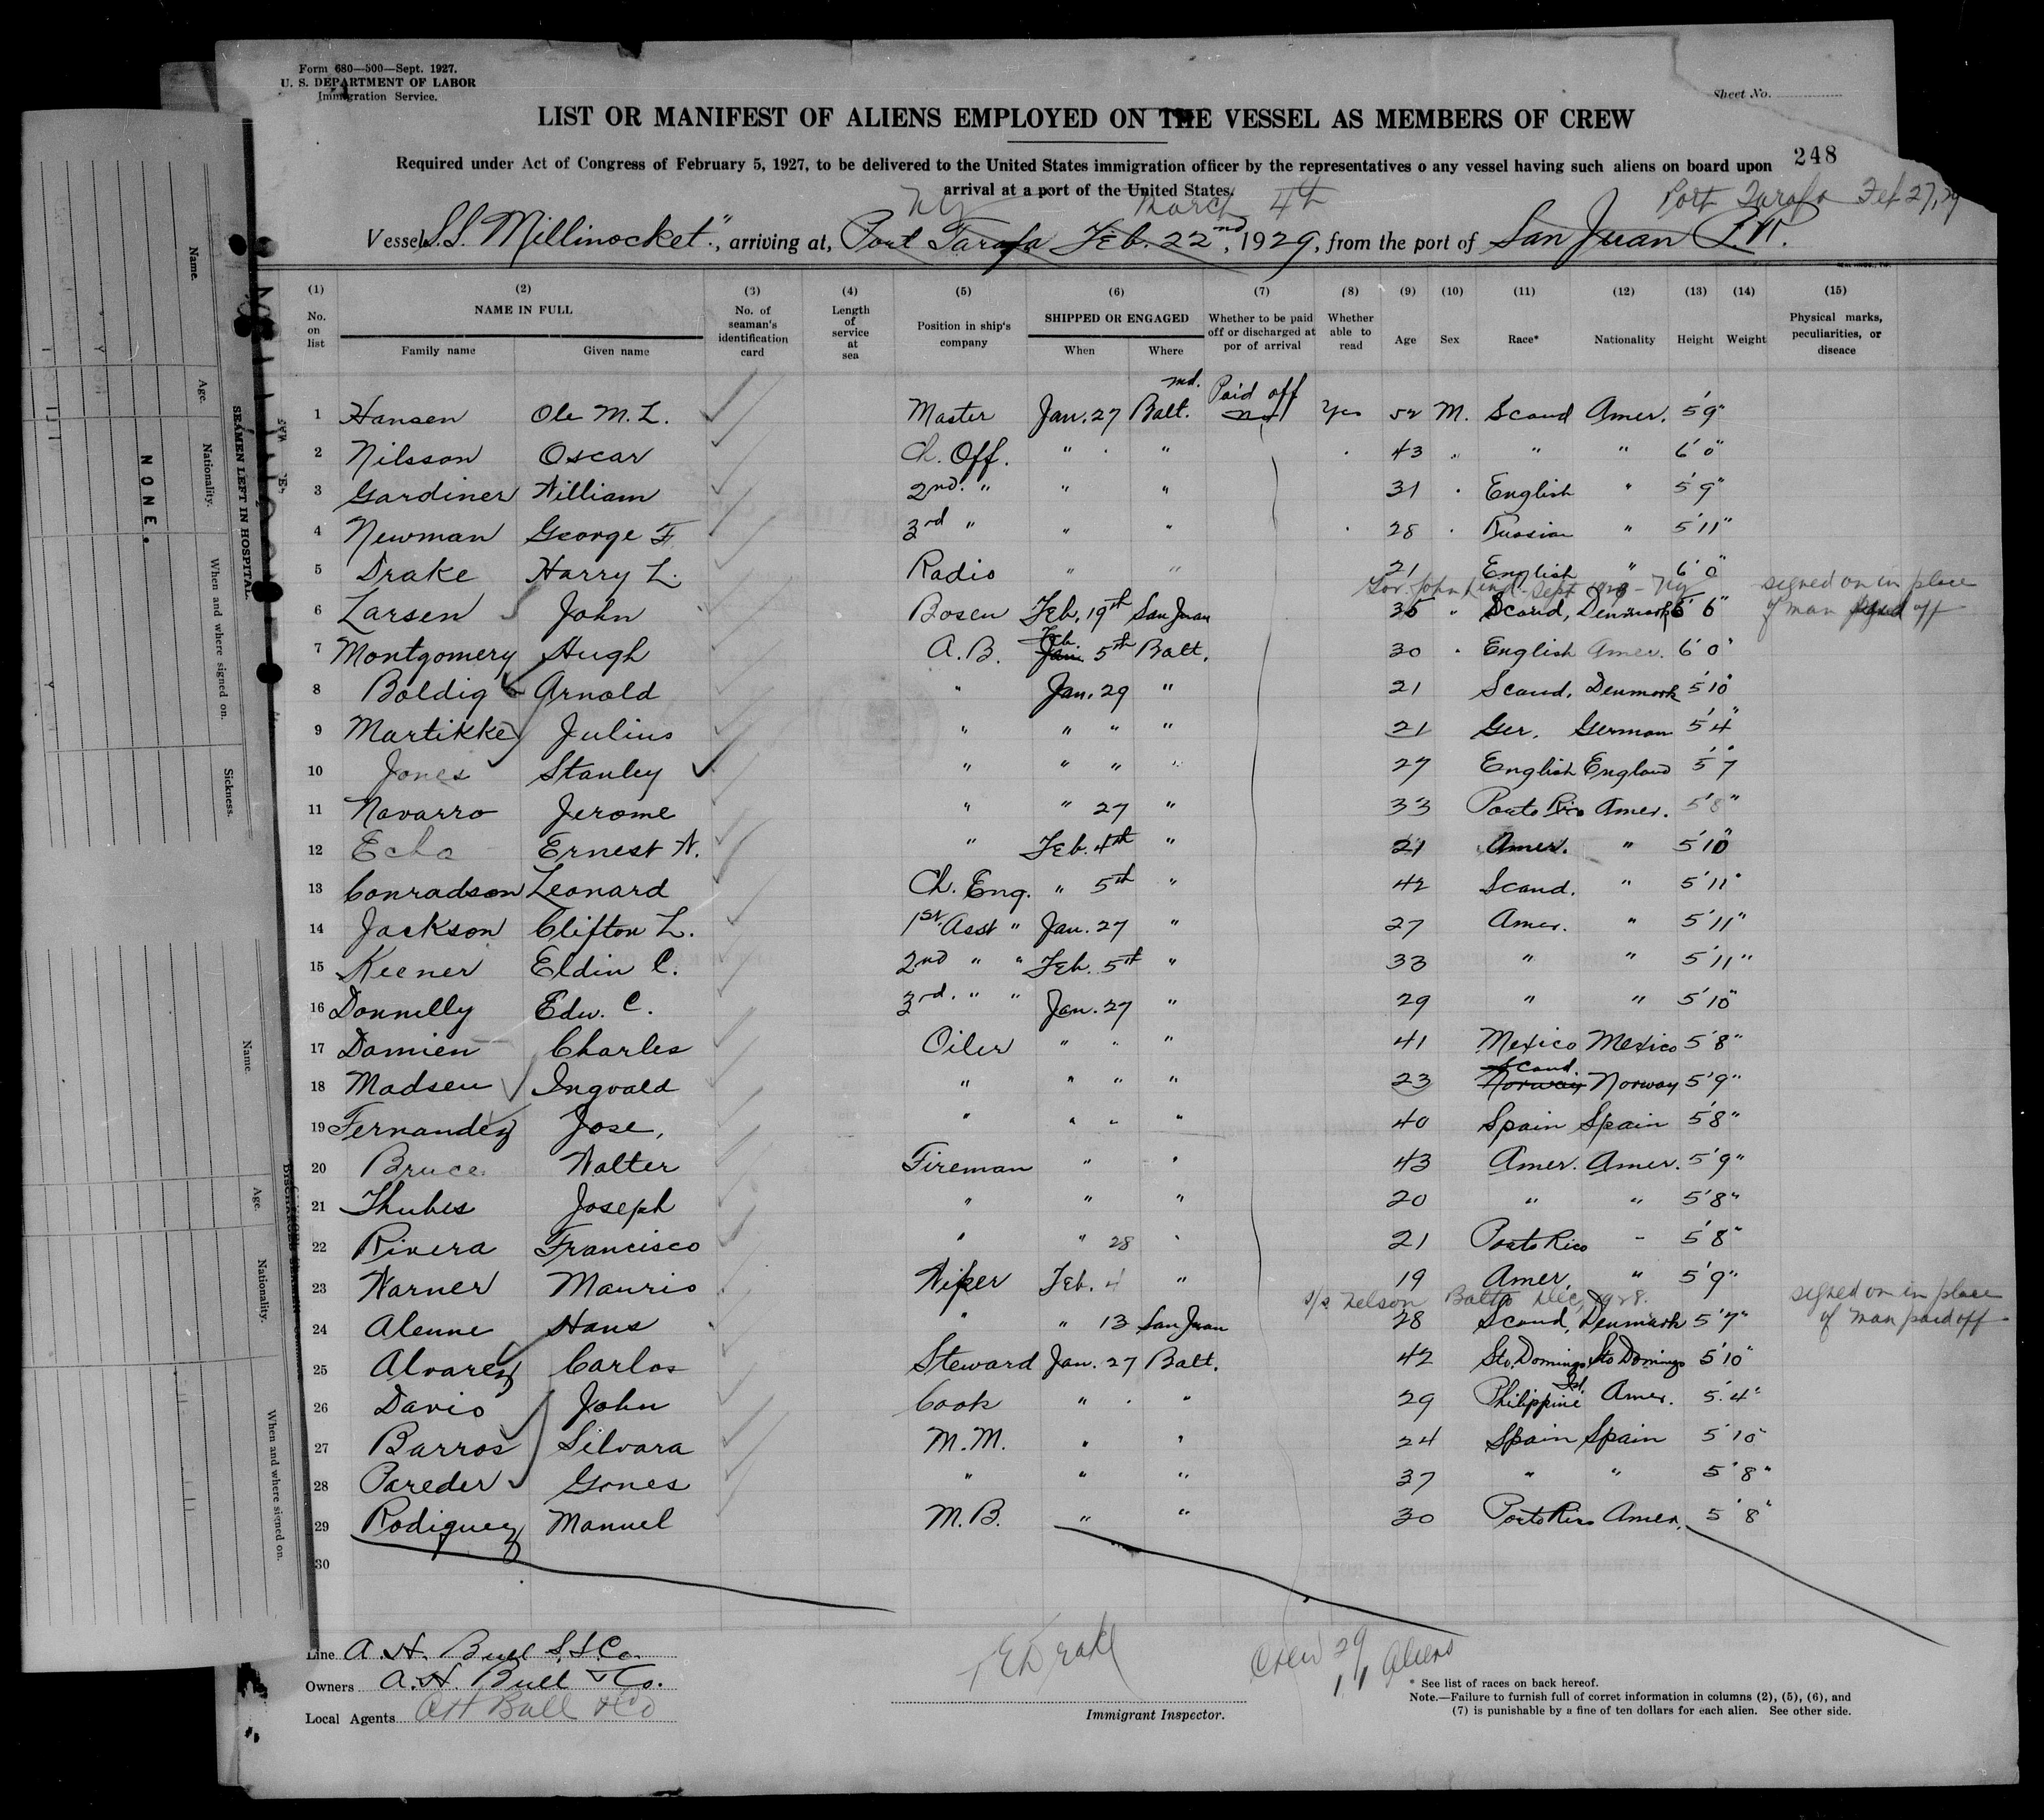 Form 680—500—Sept. 1927.
U. S. DEPARTMENT OF LABOR
Immigration Service.
Sheet No.
LIST OR MANIFEST OF ALIENS EMPLOYED ON THE VESSEL AS MEMBERS OF CREW
Required under Act of Congress of February 5, 1927, to be delivered to the United States immigration officer by the representatives o any vessel having such aliens on board upon
arrival at a port of the United States.
248
NY March 4th Port Tarafa Feb 27, 29
Vessel S.S. "Millinocket", arriving at, Port Tarafa Feb. 22nd, 1929, from the port of San Juan P.R.
(1) (2) (3) (4) (5) (6) (7) (8) (9) (10) (11) (12) (13) (14) (15)
No. on list NAME IN FULL Family name Given name No. of seaman's identification card Length of service at sea Position in ship's company SHIPPED OR ENGAGED When Where Whether to be paid off or discharged at por of arrival Whether able to read Age Sex Race* Nationality Height Weight Physical marks, peculiarities, or diseace
1 Hansen Ole M. L. Master Jan. 27 Balt. Md. Paid off No Yes 52 M. Scand Amer. 5'9"
2 Nilsson Oscar Ch. Off. " " 43 " " " 6'0"
3 Gardiner William 2nd. " " " 31 " English " 5'9"
4 Newman George F. 3rd " " " 28 " Russian " 5'11"
5 Drake Harry L. Radio " " 21 English " 6'0"
Gov. John Lind - Sept 1928 - NY signed on in place
6 Larsen John Bosen Feb. 19th San Juan 35 " Scand, Denmark 5'6" of man paid off
7 Montgomery Hugh A. B. Jan. Feb. 5th Balt. 30 " English Amer. 6'0"
8 Boldig Arnold " Jan. 29 " 21 Scand. Denmark 5'10"
9 Martikke Julius " " " " 21 Ger. German 5'4"
10 Jones Stanley " " " " 27 English England 5'7"
11 Navarro Jerome " " 27 " 33 Porto Rico Amer. 5'8"
12 Echo Ernest W. " Feb. 4th " 21 Amer. " 5'10"
13 Conradson Leonard Ch. Eng. " 5th " 42 Scand. " 5'11"
14 Jackson Clifton L. 1st Asst " Jan. 27 " 27 Amer. " 5'11"
15 Keener Eldin C. 2nd " " Feb. 5th " 33 " " 5'11"
16 Donnelly Edw. C. 3rd. " " Jan. 27 " 29 " " 5'10"
17 Damien Charles Oiler " " " 41 Mexico Mexico 5'8"
18 Madsen Ingvald " " " " 23 Norway Scand. Norway 5'9"
19 Fernandez Jose, " " " " 40 Spain Spain 5'8"
20 Bruce Walter Fireman " " 43 Amer. Amer. 5'9"
21 Thubes Joseph " " " 20 " " 5'8"
22 Rivera Francisco " " 28 " 21 Porto Rico " 5'8"
23 Warner Mauris Wiper Feb. 4 " 19 Amer. " 5'9"
s/s Nelson Balto Dec, 1928. signed on in place
24 Alenne Hans " " 13 San Juan 28 Scand, Denmark 5'7" of man paid off
25 Alvarez Carlos Steward Jan. 27 Balt. 42 Sto. Domingo Sto Domingo 5'10"
26 Davis John Cook " " " 29 Philippine Isl. Amer. 5'4"
27 Barros Silvara M. M. " " 24 Spain Spain 5'10"
28 Pareder Gones " " " 37 " " 5'8"
29 Rodiguez Manuel M. B. " " 30 Porto Rico Amer. 5'8"
30
Line A. H. Bull S. S. Co.
Owners A. H. Bull & Co.
Local Agents A H Bull & Co
Drake
Immigrant Inspector.
Crew 29
11 Aliens
* See list of races on back hereof.
Note.—Failure to furnish full of corret information in columns (2), (5), (6), and
(7) is punishable by a fine of ten dollars for each alien. See other side.
SEAMEN LEFT IN HOSPITAL.
Name. Age. Nationality. When and where signed on. Sickness.
NONE.
Name Age. Nationality. When and where signed on.